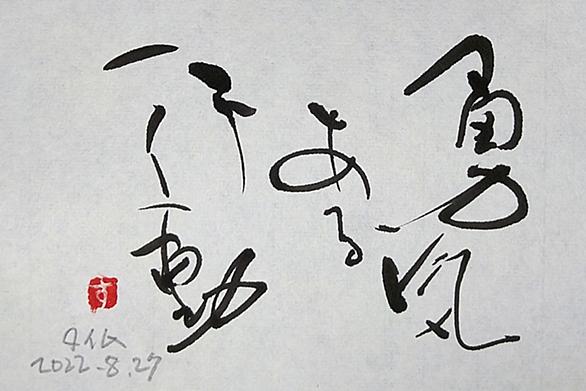 勇気
ある
行動
す
2022-8.27